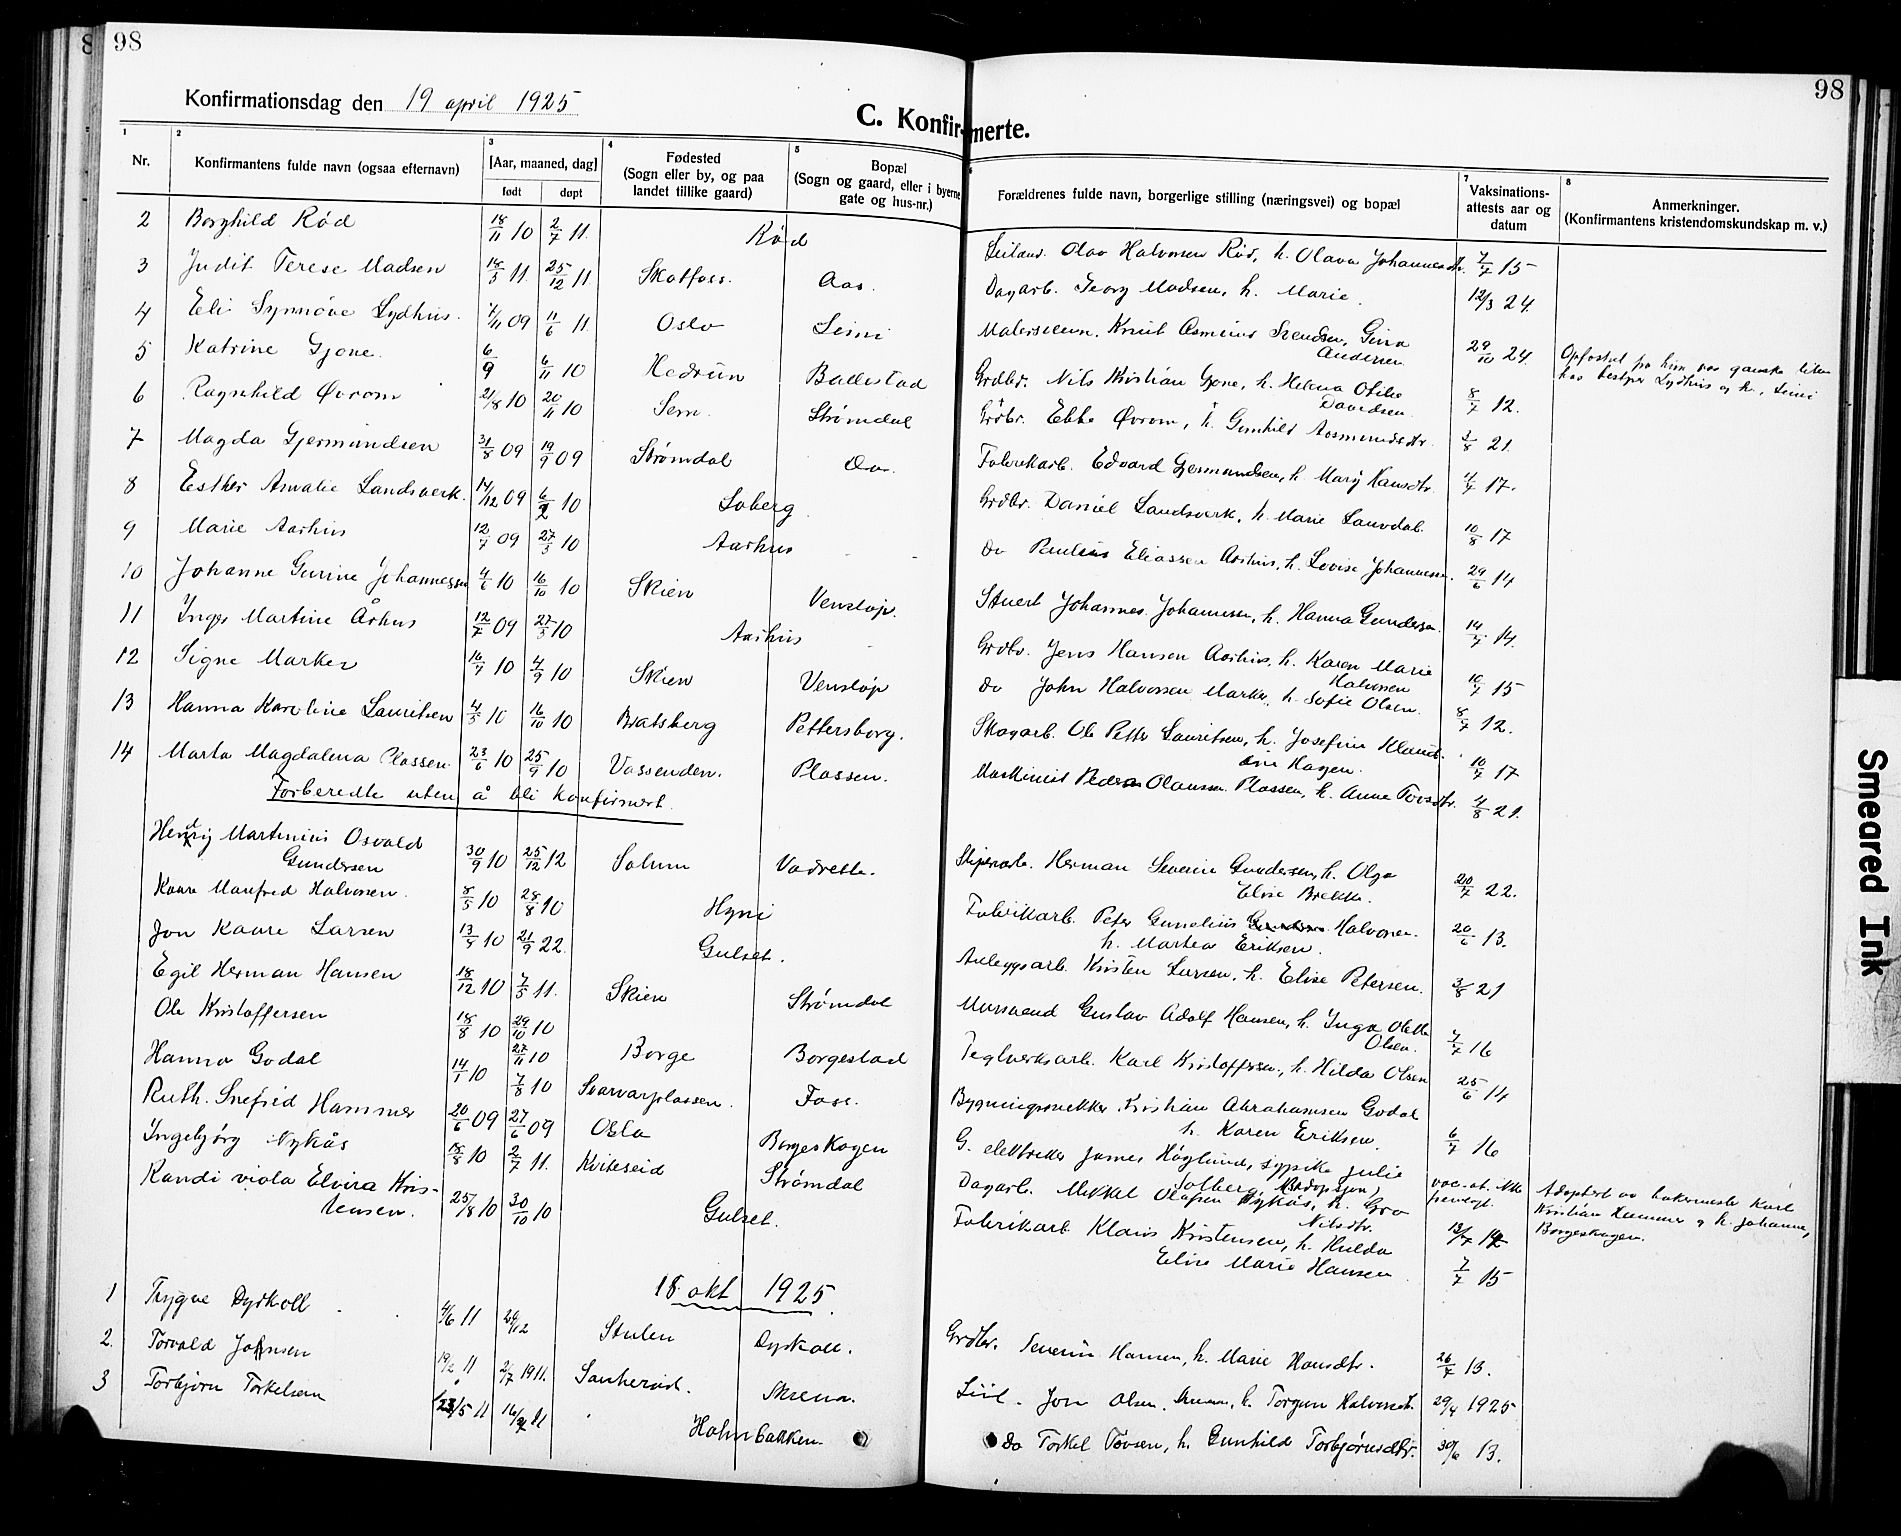 98
98
Konfirmationsdag den 19 april 1925
C. Konfirmerte.
1 2 3 4 5 6 7 8
Nr. Konfirmantens fulde navn (ogsaa efternavn) [Aar, maaned, dag] født døpt Fødested (Sogn eller by, og paa landet tillike gaard) Bopæl (Sogn og gaard, eller i byerne gate og hus-nr.) Forældrenes fulde navn, borgerlige stilling (næringsvei) og bopæl Vaksinations-attests aar og datum Anmerkninger. (Konfirmantens kristendomskundskap m. v.)
2 Borghild Rød 18/11 10 2/7 11. Rød Olav Halvorsen Rød, h. Olava Johannesdtr. 7/7 15
3 Judit Terese Madsen 18/5 11. 25/12 11. Skotfoss. Aas. Dagarb. Georg Madsen, h. Marie. 12/3 24.
4 Eli Synnøve Lydhus. 7/11 09 11/6 11. Oslo Leini Malersvenn. Knut Asmund Svendsen, Gina Andersen 29/10 24
5 Katrine Gjone. 6/9 6/11 10 Hedrum Ballestad Grdbr. Nils Kristian Gjone, h. Helena Otilie Davidsen. 8/7 12.
6 Ragnhild Øvrom 21/8 10 20/11 10 Sem. Strømdal Grdbr. Ebbe Øvrom, h. Gunhild Aasmundsdtr. 3/8 21.
7 Magda Gjermundsen 31/8 09 19/9 09 Strømdal Do. Fabrikarb. Edvard Gjermundsen, h. Mary Hansdtr. 4/7 17.
8 Esther Amalie Landsverk. 14/12 09 6/2 10 Soberg Grdbr. Daniel Landsverk, h. Marie Lauvdal. 10/8 17
9 Marie Aarhus 12/7 09 27/3 10 Aarhus Do Paulus Eliassen Aarhus, h. Lovise Johannesen. 29/6 14
10 Johanne Gurine Johannessen 4/6 10 16/10 10 Skien Venstøp. Stuert Johannes Johannesen, h. Hanna Gundersen. 14/7 14.
11 Inger Martine Århus 12/7 09 27/3 10 Aarhus Grdbr. Jens Hansen Aarhus, h. Karen Marie Halvorsen 10/7 15
12 Signe Marker 16/7 10 4/9 10 Skien Venstøp Do John Halvorsen Marker, h. Sofie Olsen. 8/7 12.
13 Hanna Karoline Lauritsen 4/5 10 16/10 10 Bratsberg Pettersborg. Skogarb. Ole Petter Lauritsen, h. Josefine Klaudine Hagen. 10/7 17
14 Marta Magdalena Plassen 23/6 10 25/9 10 Vassenden. Plassen. Maskinist Peder Olaussen Plassen, h. Anne Tovsdtr. 4/8 21.
Forberedte uten å bli konfirmert.
Henrig Martinius Osvald Gundersen 30/9 10 25/12 12 Solum Vadrette. Sliperarb. Herman Severin Gundersen, h. Olga Elise Brekke. 20/7 22.
Kaare Manfred Halvorsen. 8/5 10 28/8 10 Hyni Fabrikarb. Peter Gunelius Halvorsen. h. Martea Eriksen. 20/6 13.
Jon Kaare Larsen 13/9 10 21/9 22. Gulset. Anleggsarb. Kristen Larsen, h. Elise Petersen. 3/8 21
Egil Herman Hansen 18/12 10 7/5 11. Skien Strømdal Murmand Gustav Adolf Hansen, h. Inga Olette Olsen. 7/7 16
Ole Kristoffersen 18/8 10 29/10 10 Borge Borgestad Teglverksarb. Karl Kristoffersen, h. Hilda Olsen 25/6 14
Hanna Godal 14/1 10 27/11 10 Svarvarplassen. Foss. Bygningssnekker Kristian Abrahamsen Godal h. Karen Eriksen. 6/7 16
Ruth. Snefrid Hammer 20/6 09 7/8 10 Oslo Borgeskogen G. elektriker James Höglund, sypike Julie Solberg
Ingebjørg Nykås 18/8 10 27/6 09 Kviteseid Strømdal Dagarb. Mikkel Olafsen Nykås, h. Gro Nilsdtr. 12/7 12
Randi viola Elvira Kristensen. 25/8 10 2/7 11. 30/10 10 Gulset. Fabrikarb. Klaus Kristensen, h. Hulda Elise Marie Hansen. 7/7 15
Adoptert av bakermester Karl Kristian Hammer og h. Johanne, Borgeskogen.
18 okt 1925
1 Trygve Dyrkoll 4/6 11 Stulen Dyrkoll. Grdbr. Severin Hansen, h. Marie Hansdtr. 26/7 13.
2. Torvald Johnsen 19/2 11 2/7 1911. Sauherad. Jon Olsen h. Torgun Halvorsdtr. 29/4 1925
3 Torbjørn Torkelsen 23/5 11 Do Torkel Tovsen, h. Gunhild Torbjørnsdtr. 30/6 13.
Smeared Ink